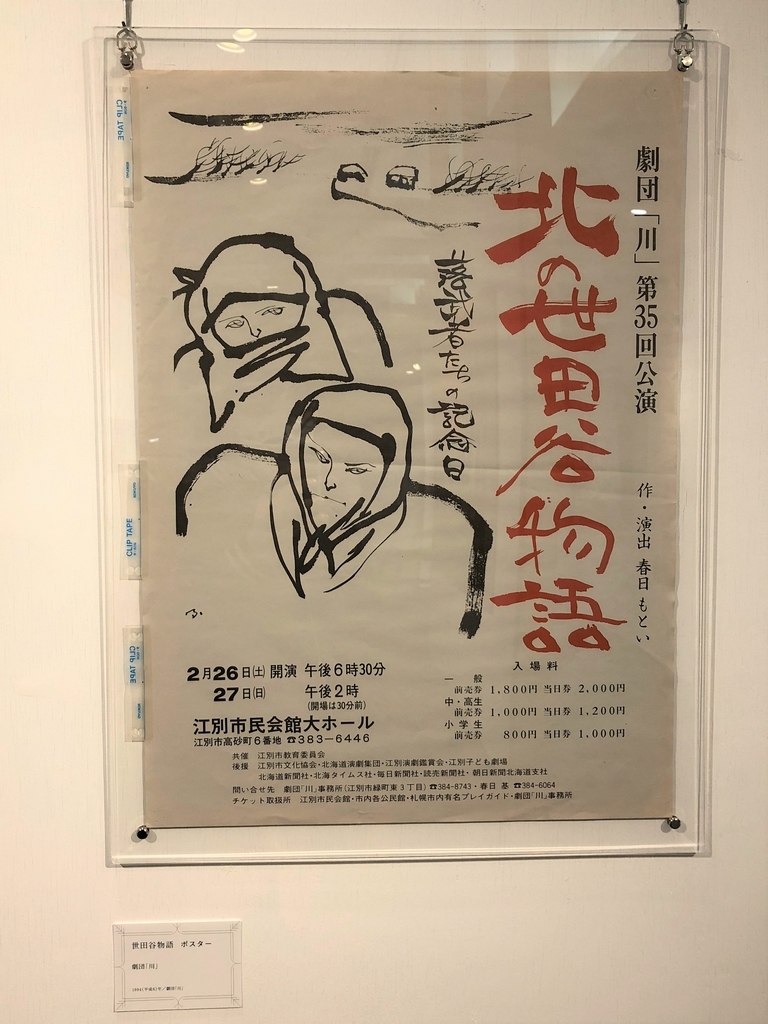 劇団「川」第35回公演
北の世田谷物語
作・演出 春日もとい
落武者たちの記念日
2月26日(土) 開演 午後6時30分
27日(日) 午後2時
(開場は30分前)
江別市民会館大ホール
江別市高砂町6番地 ☎383-6446
入場料
一般
前売券 1,800円 当日券 2,000円
中・高生
前売券 1,000円 当日券 1,200円
小学生
前売券 800円 当日券 1,000円
共催 江別市教育委員会
後援 江別市文化協会・北海道演劇集団・江別演劇鑑賞会・江別子ども劇場
北海道新聞社・北海タイムス社・毎日新聞社・読売新聞社・朝日新聞北海道支社
問い合せ先 劇団「川」事務所(江別市緑町東3丁目)☎384-8743・春日 基 ☎384-6064
チケット取扱所 江別市民会館・市内各公民館・札幌市内有名プレイガイド・劇団「川」事務所
CLIP TAPE
CLIP TAPE
CLIP TAPE
世田谷物語 ポスター
劇団「川」
1994(平成6)年/劇団「川」